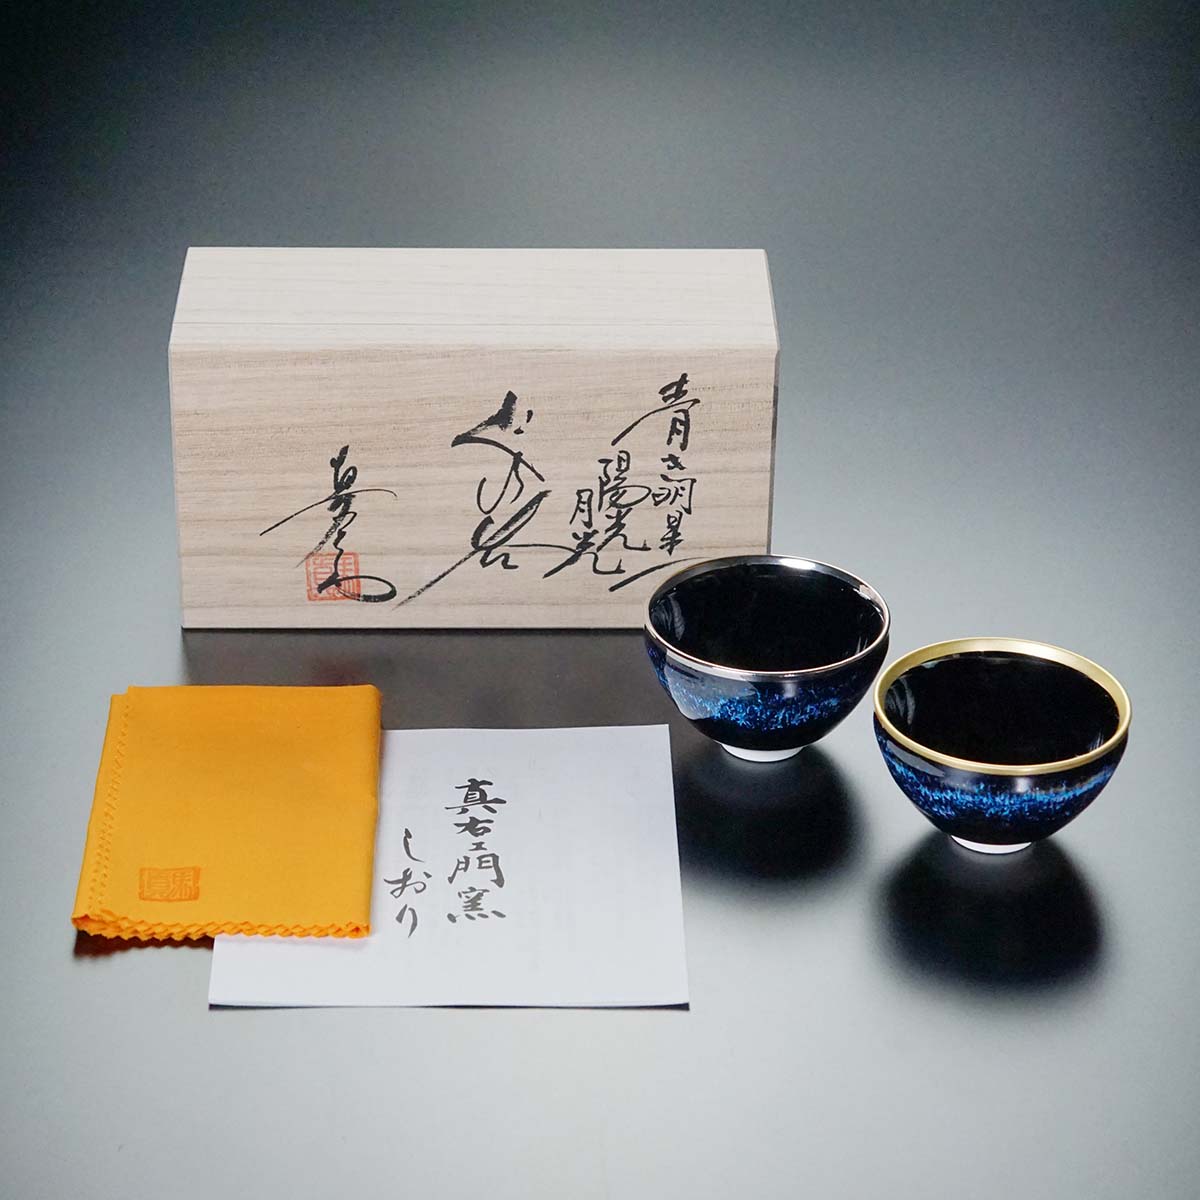 青き明星
陽光
月光
ぐい呑
真右エ門窯
しおり